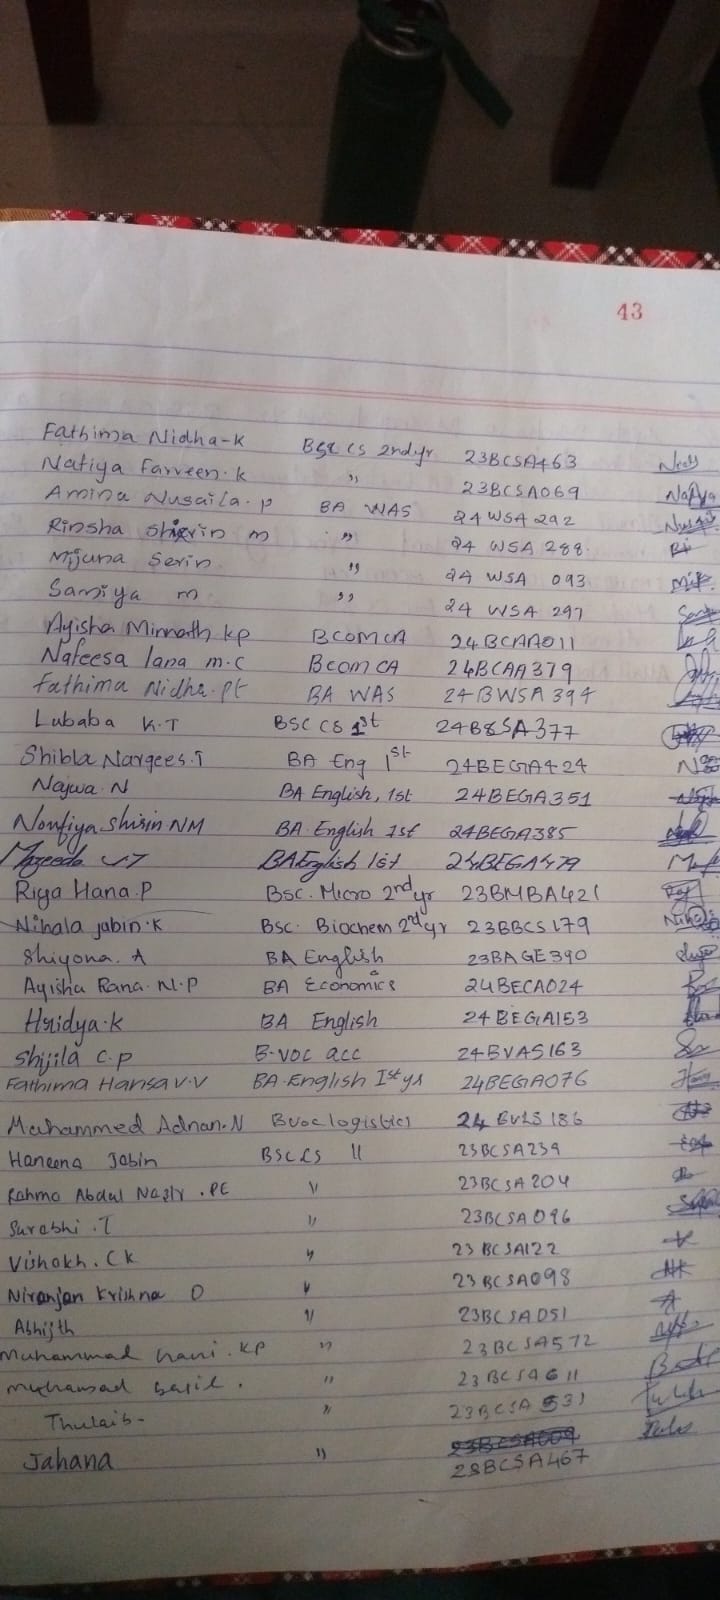 43
Fathima Nidha-K BSc CS 2nd yr 23BCSA463
Nafiya Farveen.k ,, 23BCSA069 Nafiya
Amina Nusaila.p BA WAS 24WSA292
Rinsha Shirin m ,, 24 WSA 288
Mijuna Serin ,, 24 WSA 093
Samiya m ,, 24 WSA 297
Ayisha Minnath kp BCOM CA 24BCAA011
Nafeesa lana m.c Bcom CA 24BCAA379
Fathima Nidha.pt BA WAS 24BWSA394
Lubaba K.T BSC CS 1st 24BSA377
Shibla Nargees.T BA Eng 1st 24BEGA424
Najwa N BA English, 1st 24BEGA351
Noufiya Shirin NM BA English 1st 24BEGA385
BA English 1st 24BEGA479
Riya Hana.P Bsc. Micro 2nd yr 23BMBA421
Nihala jabin.K Bsc. Biochem 2nd yr 23BBCS179
Shiyona. A BA English 23BAGE390
Ayisha Rana. N.P BA Economics 24BECA024
Hridya.k BA English 24BEGA153
Shijila C.P B.voc acc 24BVAS163
Fathima Hansa V.V BA.English Ist yr 24BEGA076
Muhammed Adnan.N Bvoc logistics 24 BVLS 186
Haneena Jabin BSC CS II 23BCSA239
Rahma Abdul Nazir.PE ,, 23BCSA204
Surabhi.T ,, 23BCSA096
Vishokh.Ck ,, 23BCSA122
Niranjan Krishna O ,, 23BCSA098
Abhijth ,, 23BCSA051
Muhammad hani.KP ,, 23BCSA572
basil. ,, 23BCSA611
Thulaib- ,, 23BCSA 531
Jahana ,, 23BCSA467